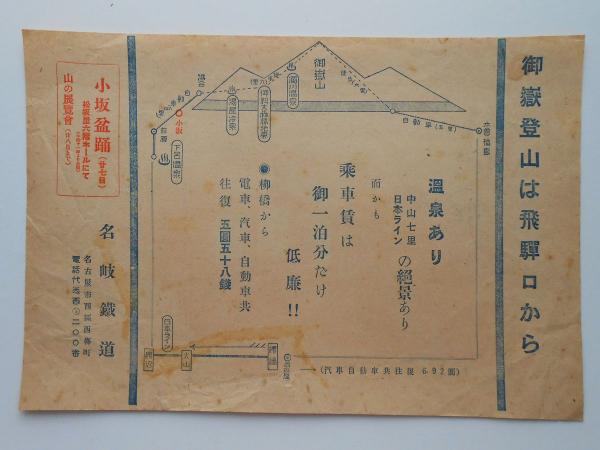 御嶽登山は飛驒口から
御嶽山
温泉あり
中山七里
日本ライン
の絕景あり
而かも
乘車賃は
御一泊分だけ
低廉!!
柳橋から
電車、汽車、自動車共
往復 五圓五十八錢
自動車
濁河温泉
湯屋温泉
小坂
下呂温泉
日本ライン
犬山
柳橋
(汽車自動車共往復6.92圓)
小坂盆踊(廿七日)
松坂屋六階ホールにて
山の展覽會(廿八日まで)
名岐鐵道
名古屋市西區西柳町